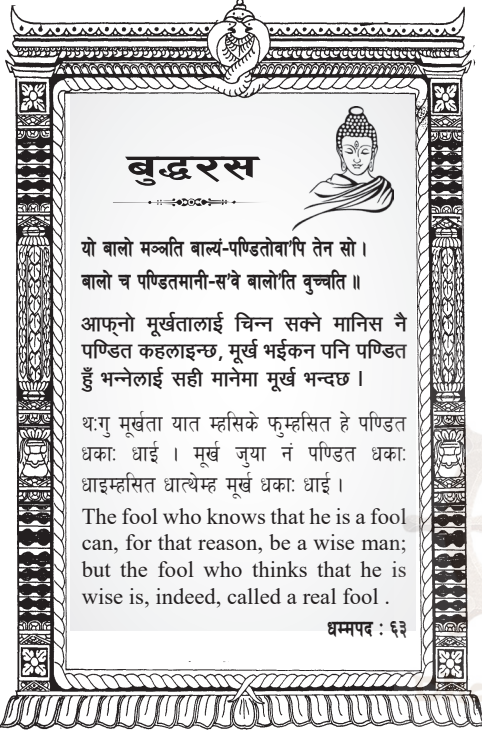 बुद्धरस
यो बालो मञ्ञति बाल्यं-पण्डितोवा'पि तेन सो ।
बालो च पण्डितमानी-स'वे बालो'ति वुच्चति ॥
आफ्नो मूर्खतालाई चिन्न सक्ने मानिस नै
पण्डित कहलाइन्छ, मूर्ख भईकन पनि पण्डित
हुँ भन्नेलाई सही मानेमा मूर्ख भन्दछ ।
थःगु मूर्खता यात म्हसिके फुम्हसित हे पण्डित
धकाः धाई । मूर्ख जुया नं पण्डित धकाः
धाइम्हसित धात्थेम्ह मूर्ख धकाः धाई ।
The fool who knows that he is a fool
can, for that reason, be a wise man;
but the fool who thinks that he is
wise is, indeed, called a real fool .
धम्मपद : ६३